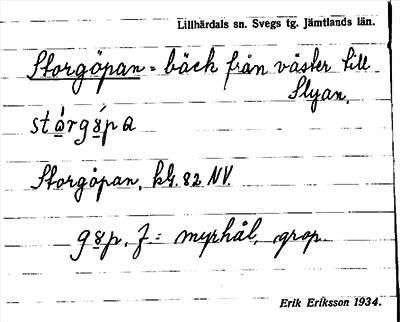 Lillhärdals sn. Svegs tg. Jämtlands län.
Storgöpan = bäck från väster till
Slyan.
stárgö́pa
Storgöpan, kbl. 82 NV.
göp, f = myrhål, grop
Erik Eriksson 1934.